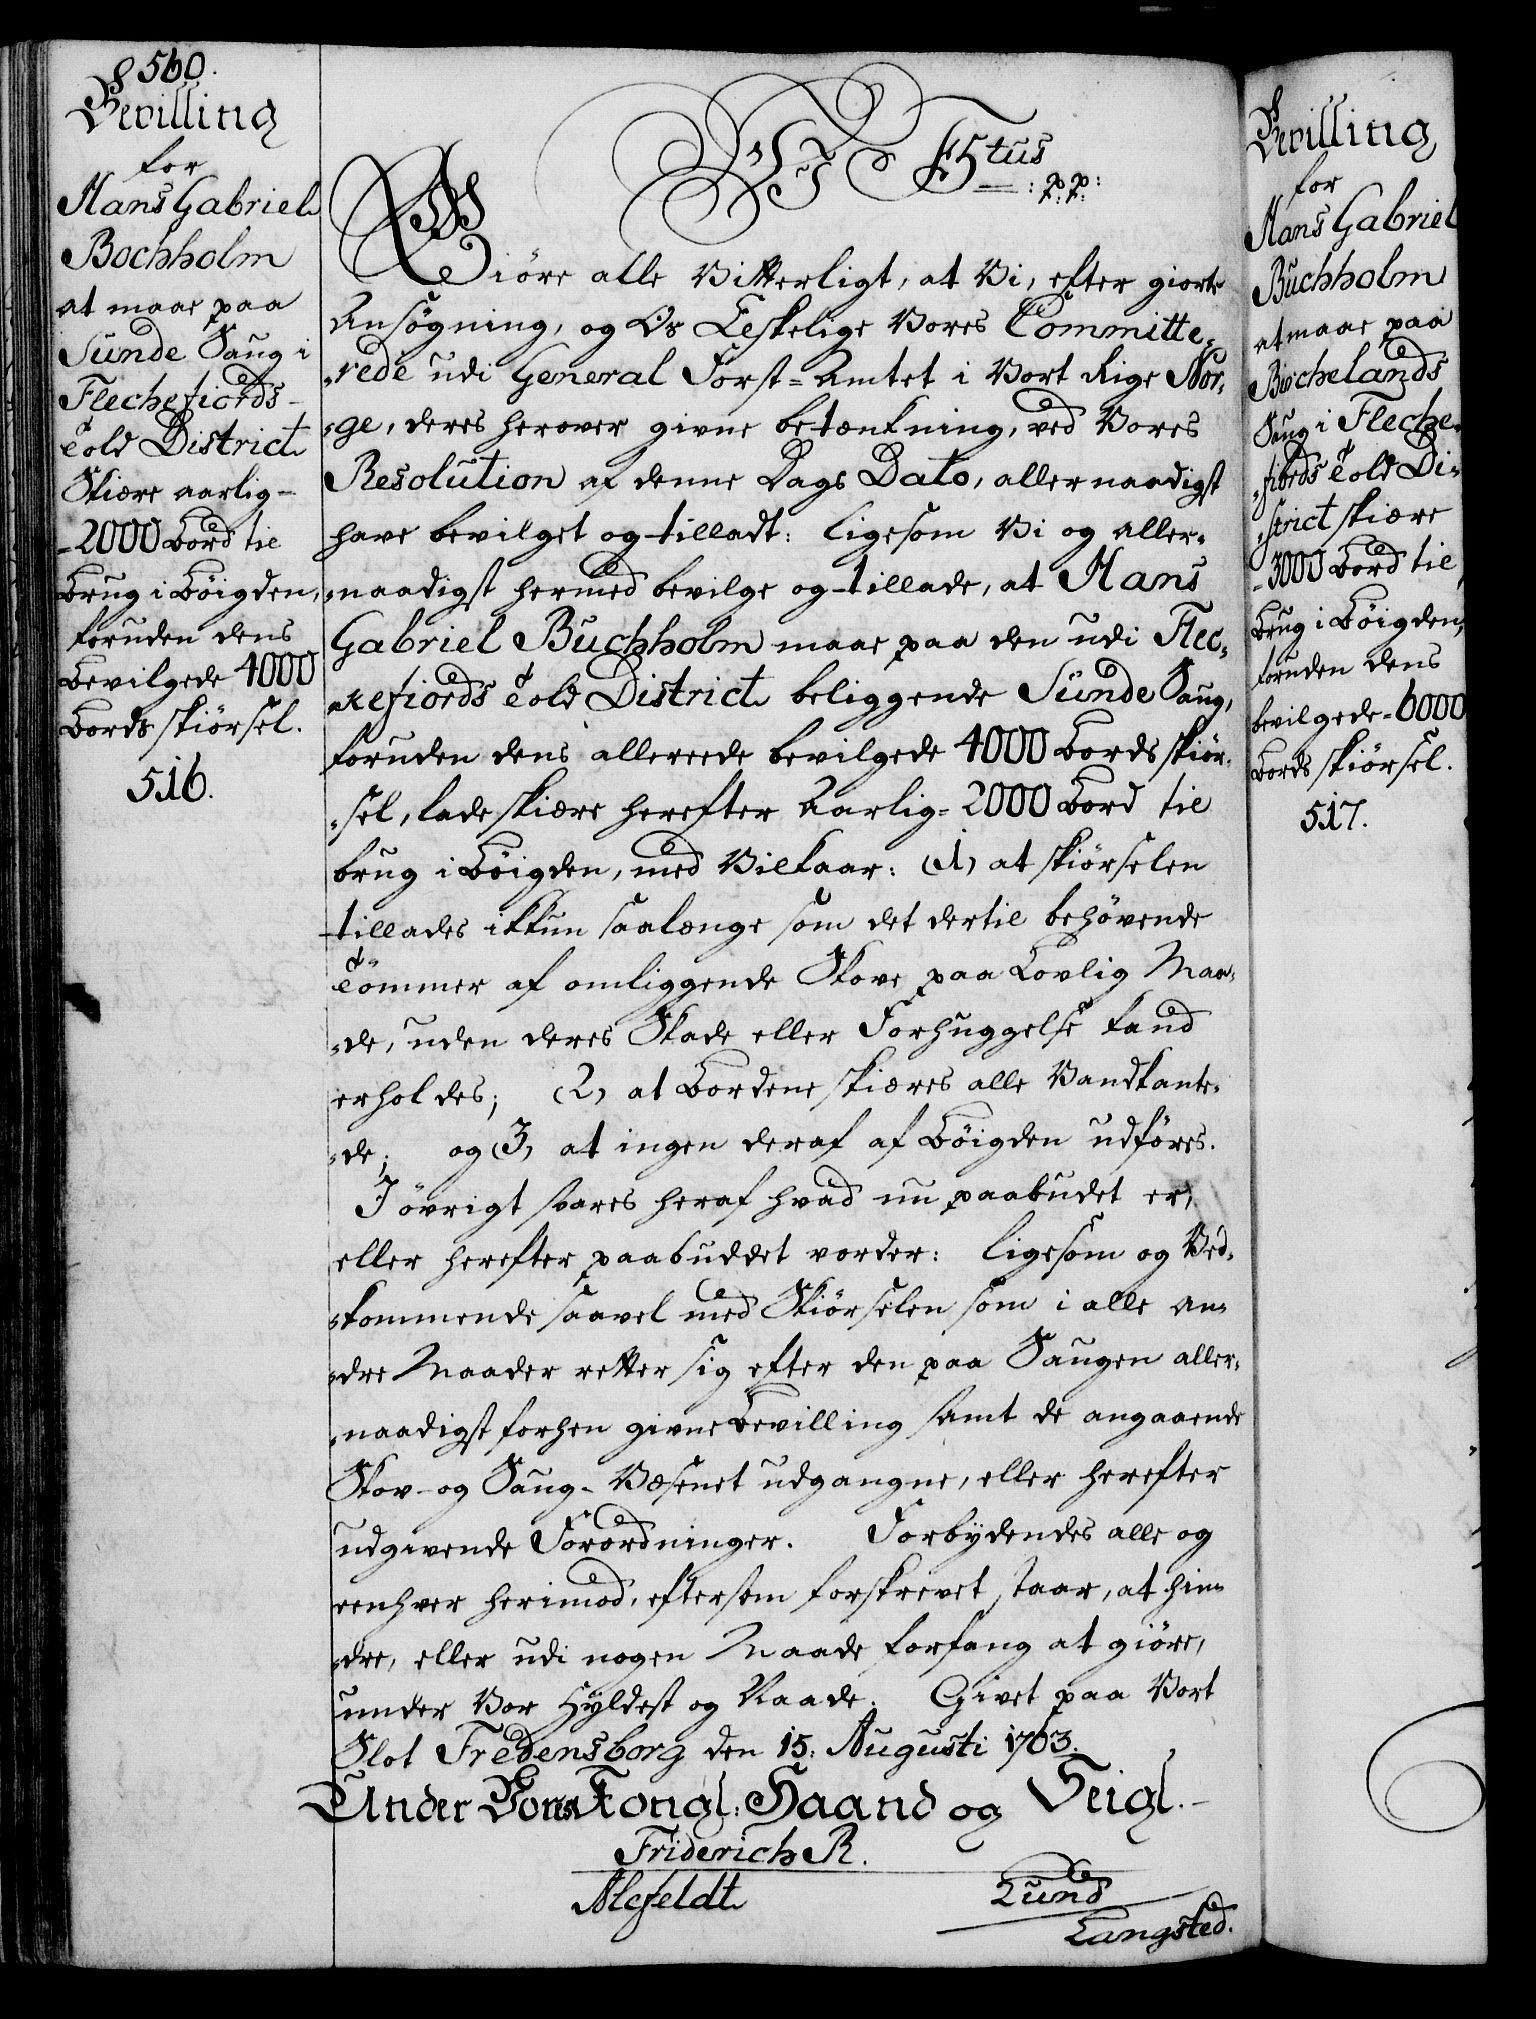 560.
Bevilling
for
Hans Gabriel
Bochholm
at maae paa
Sunde Saug i
Flechefiords-
Told District
Skiære aarlig-
-2000 Bord til
Brug i Böigden,
foruden dens
Bevilgede 4000
Bords skiørsel.
516.
Vi F5tus
:p:p:
Giöre alle Vitterligt, at Vi, efter giorte
Ansøgning, og Os Elskelige Vores Committe-
-rede udi General Forst-Amtet i Vort Rige Nor-
-ge, deres herover givne betænkning, ved Vores
Resolution af denne Dags Dato, allernaadigst
have bevilget og tilladt: ligesom Vi og aller-
-naadigst hermed bevilge og tillade, at Hans
Gabriel Buchholm maae paa den udi Flec-
-kefiords Told District beliggende Sunde Saug,
foruden dens allereede bevilgede 4000 Bords skiör-
-sel, lade skiære herefter Aarlig-2000 Bord til
brug i Böigden, med Vilkaar: (1) at skiörselen
tillades ikkun saalænge som det dertil behövende
Tömmer af omliggende Skove paa Lovlig Maa-
-de, uden deres Skade eller Forhuggelse kand
erholdes; (2) at Bordene skiæres alle Vandkante-
-de; og (3) at ingen deraf af Böigden udföres.
I övrigt svares heraf hvad nu paabudet er,
eller herefter paabuddet vorder: ligesom og Ved-
-kommende saavel med Skiörselen som i alle an-
-dre Maader retter sig efter den paa Saugen aller-
-naadigst forhen givne Bevilling samt de angaaende
Skov- og Saug-Væsenet udgangne, eller herefter
udgivende Forordninger. Forbydendes alle og
eenhver herimod, eftersom forskrevet staar, at hin-
-dre, eller udi nogen Maade forfang at giöre,
under Vor Hyldest og Naade. Givet paa Vort
Slot Fredensborg den 15. Augusti 1763.
Under Vores Kongl: Haand og Seigl.
Friderich R.
Alefeldt
Lund
Langsted.
Bevilling
for
Hans Gabriel
Buchholm
at maae paa
Birchelands
Saug i Flecke-
-fiords Told Di-
-strict skiære
-3000 Bord til
Brug i Böigden,
foruden dens
bevilgede-6000
Bords skiørsel.
517.